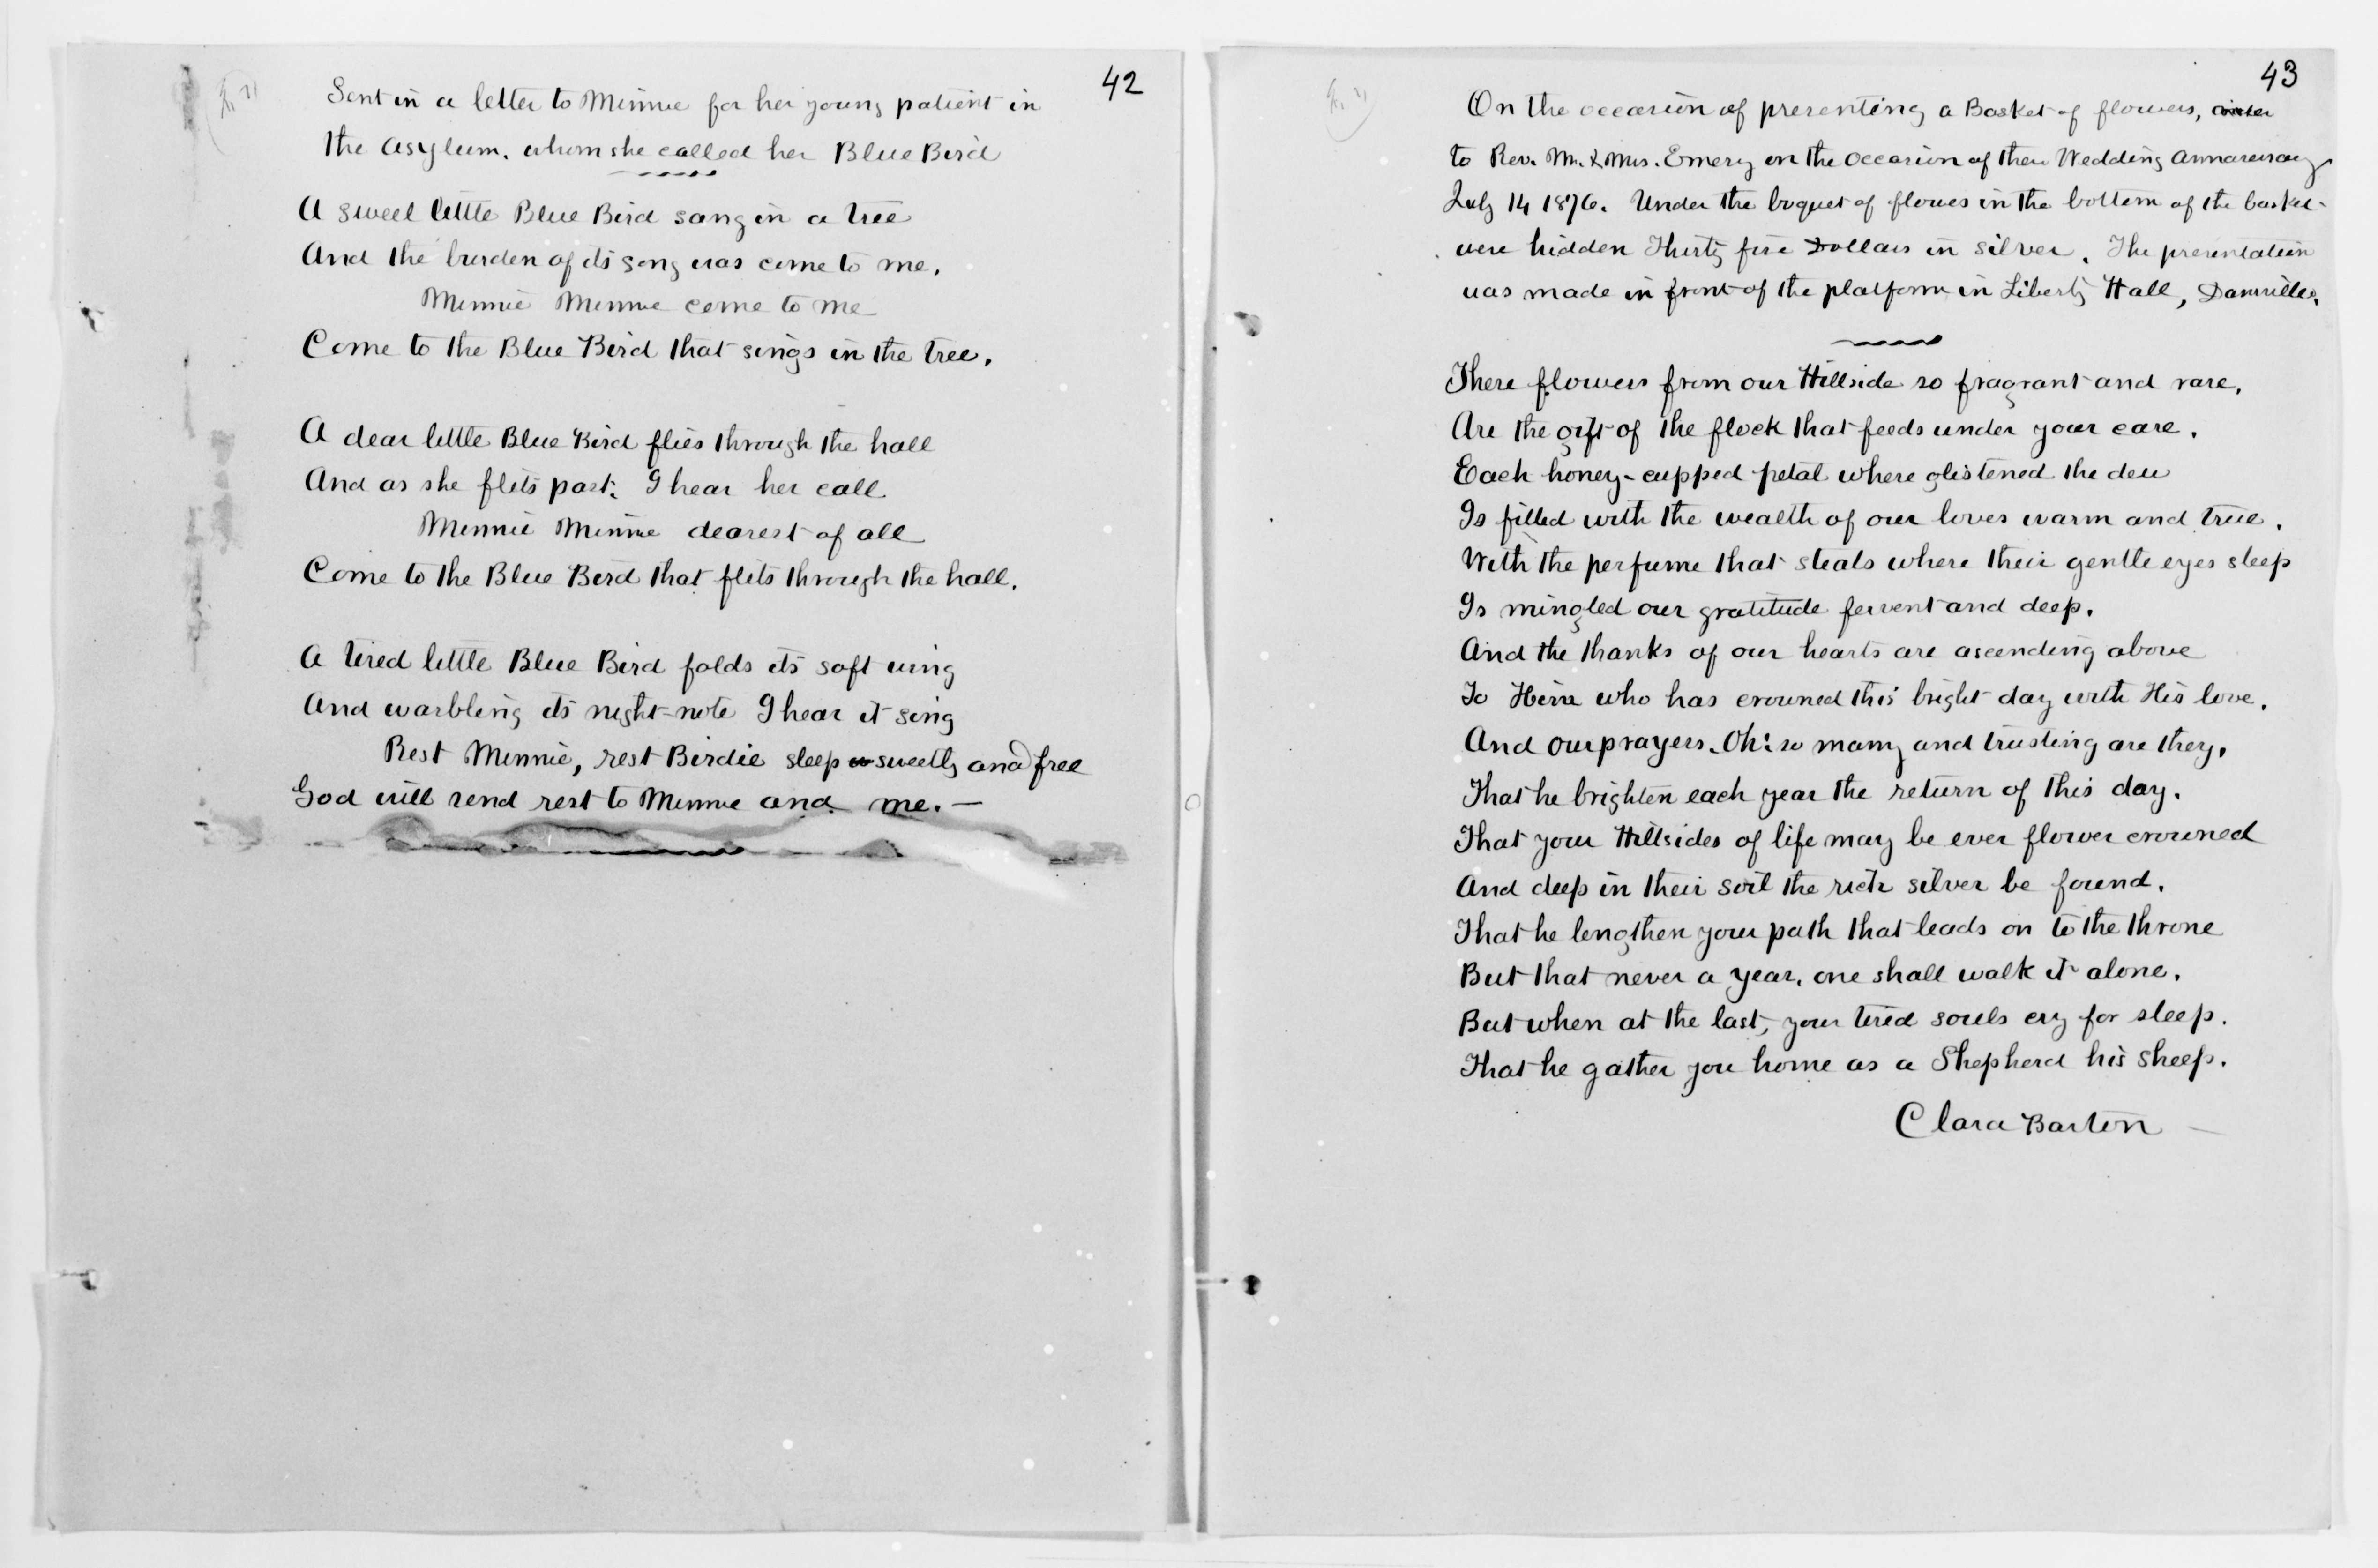 42
Sent in a letter to Minnie for her young patient in
the asylum. whom she called her Blue Bird
A sweet little Blue Bird sang in a tree
And the burden of its song was come to me.
Minnie Minnie come to me
Come to the Blue Bird that sings in the tree.
A dear little Blue Bird flies through the hall
And as she flits past. I hear her call
Minnie Minnie dearest of all
Come to the Blue Bird that flits through the hall.
A tired little Blue Bird folds its soft wing
And warbling its night-note I hear it sing
Rest Minnie, rest Birdie sleep sweetly and free
God will send rest to Minnie and me. —
43
On the occasion of presenting a Basket of flowers,
to Rev. Mr. & Mrs. Emery on the occasion of their Wedding Anniversary
July 14 1876. Under the boquet of flowers in the bottom of the basket
were hidden Thirty five Dollars in silver. The presentation
was made in front of the platform in Liberty Hall, Dansville,
These flowers from our Hillside so fragrant and rare,
Are the gift of the flock that feeds under your care.
Each honey-cupped petal where glistened the dew
Is filled with the wealth of our loves warm and true.
With the perfume that steals where their gentle eyes sleep
Is mingled our gratitude fervent and deep.
And the thanks of our hearts are ascending above
To Him who has crowned this bright day with His love.
And our prayers. Oh! so many and trusting are they,
That he brighten each year the return of this day.
That your Hillsides of life may be ever flower crowned
And deep in their soil the rich silver be found.
That he lengthen your path that leads on to the throne
But that never a year, one shall walk it alone.
But when at the last, your tired souls cry for sleep.
That he gather you home as a Shepherd his sheep.
Clara Barton —